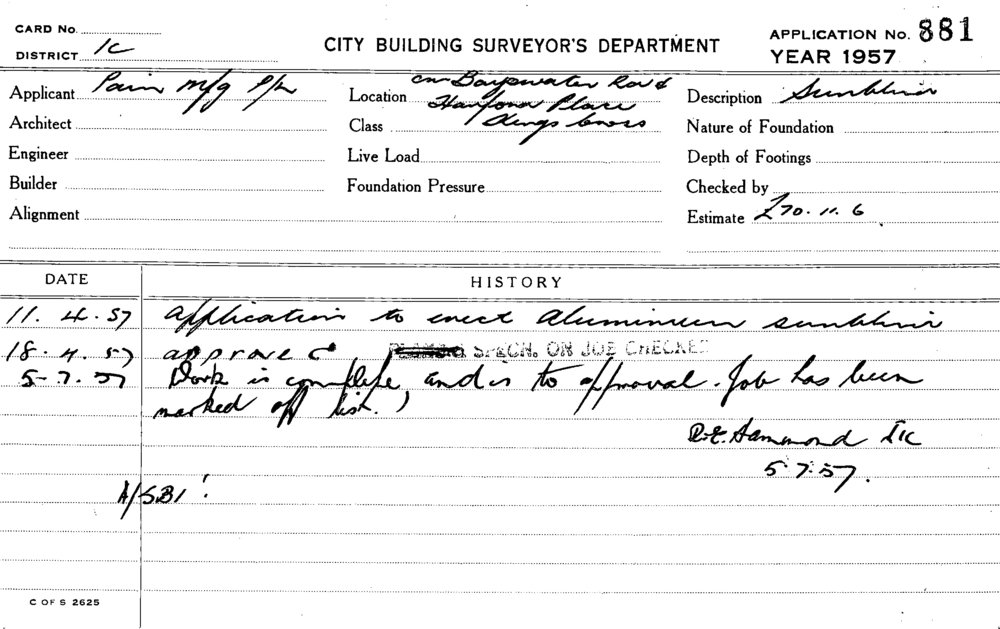 CARD No.
DISTRICT 1C
CITY BUILDING SURVEYOR'S DEPARTMENT
APPLICATION No. 881
YEAR 1957
Applicant Pain Mfg P/L
Location cnr Bayswater Road
Place
Description Sunblind
Architect
Class Kings Cross
Nature of Foundation
Engineer
Live Load
Depth of Footings
Builder
Foundation Pressure
Checked by
Alignment
Estimate £70.11.6
DATE HISTORY
11.4.57 Application to erect Aluminium sunblind
18.4.57 approved SPECN. ON JOB CHECKED
5.7.57 Work is complete and is to approval. Job has been
marked off list.
R.E. Hammond 1C
5.7.57.
A/SBI
C OF S 2625